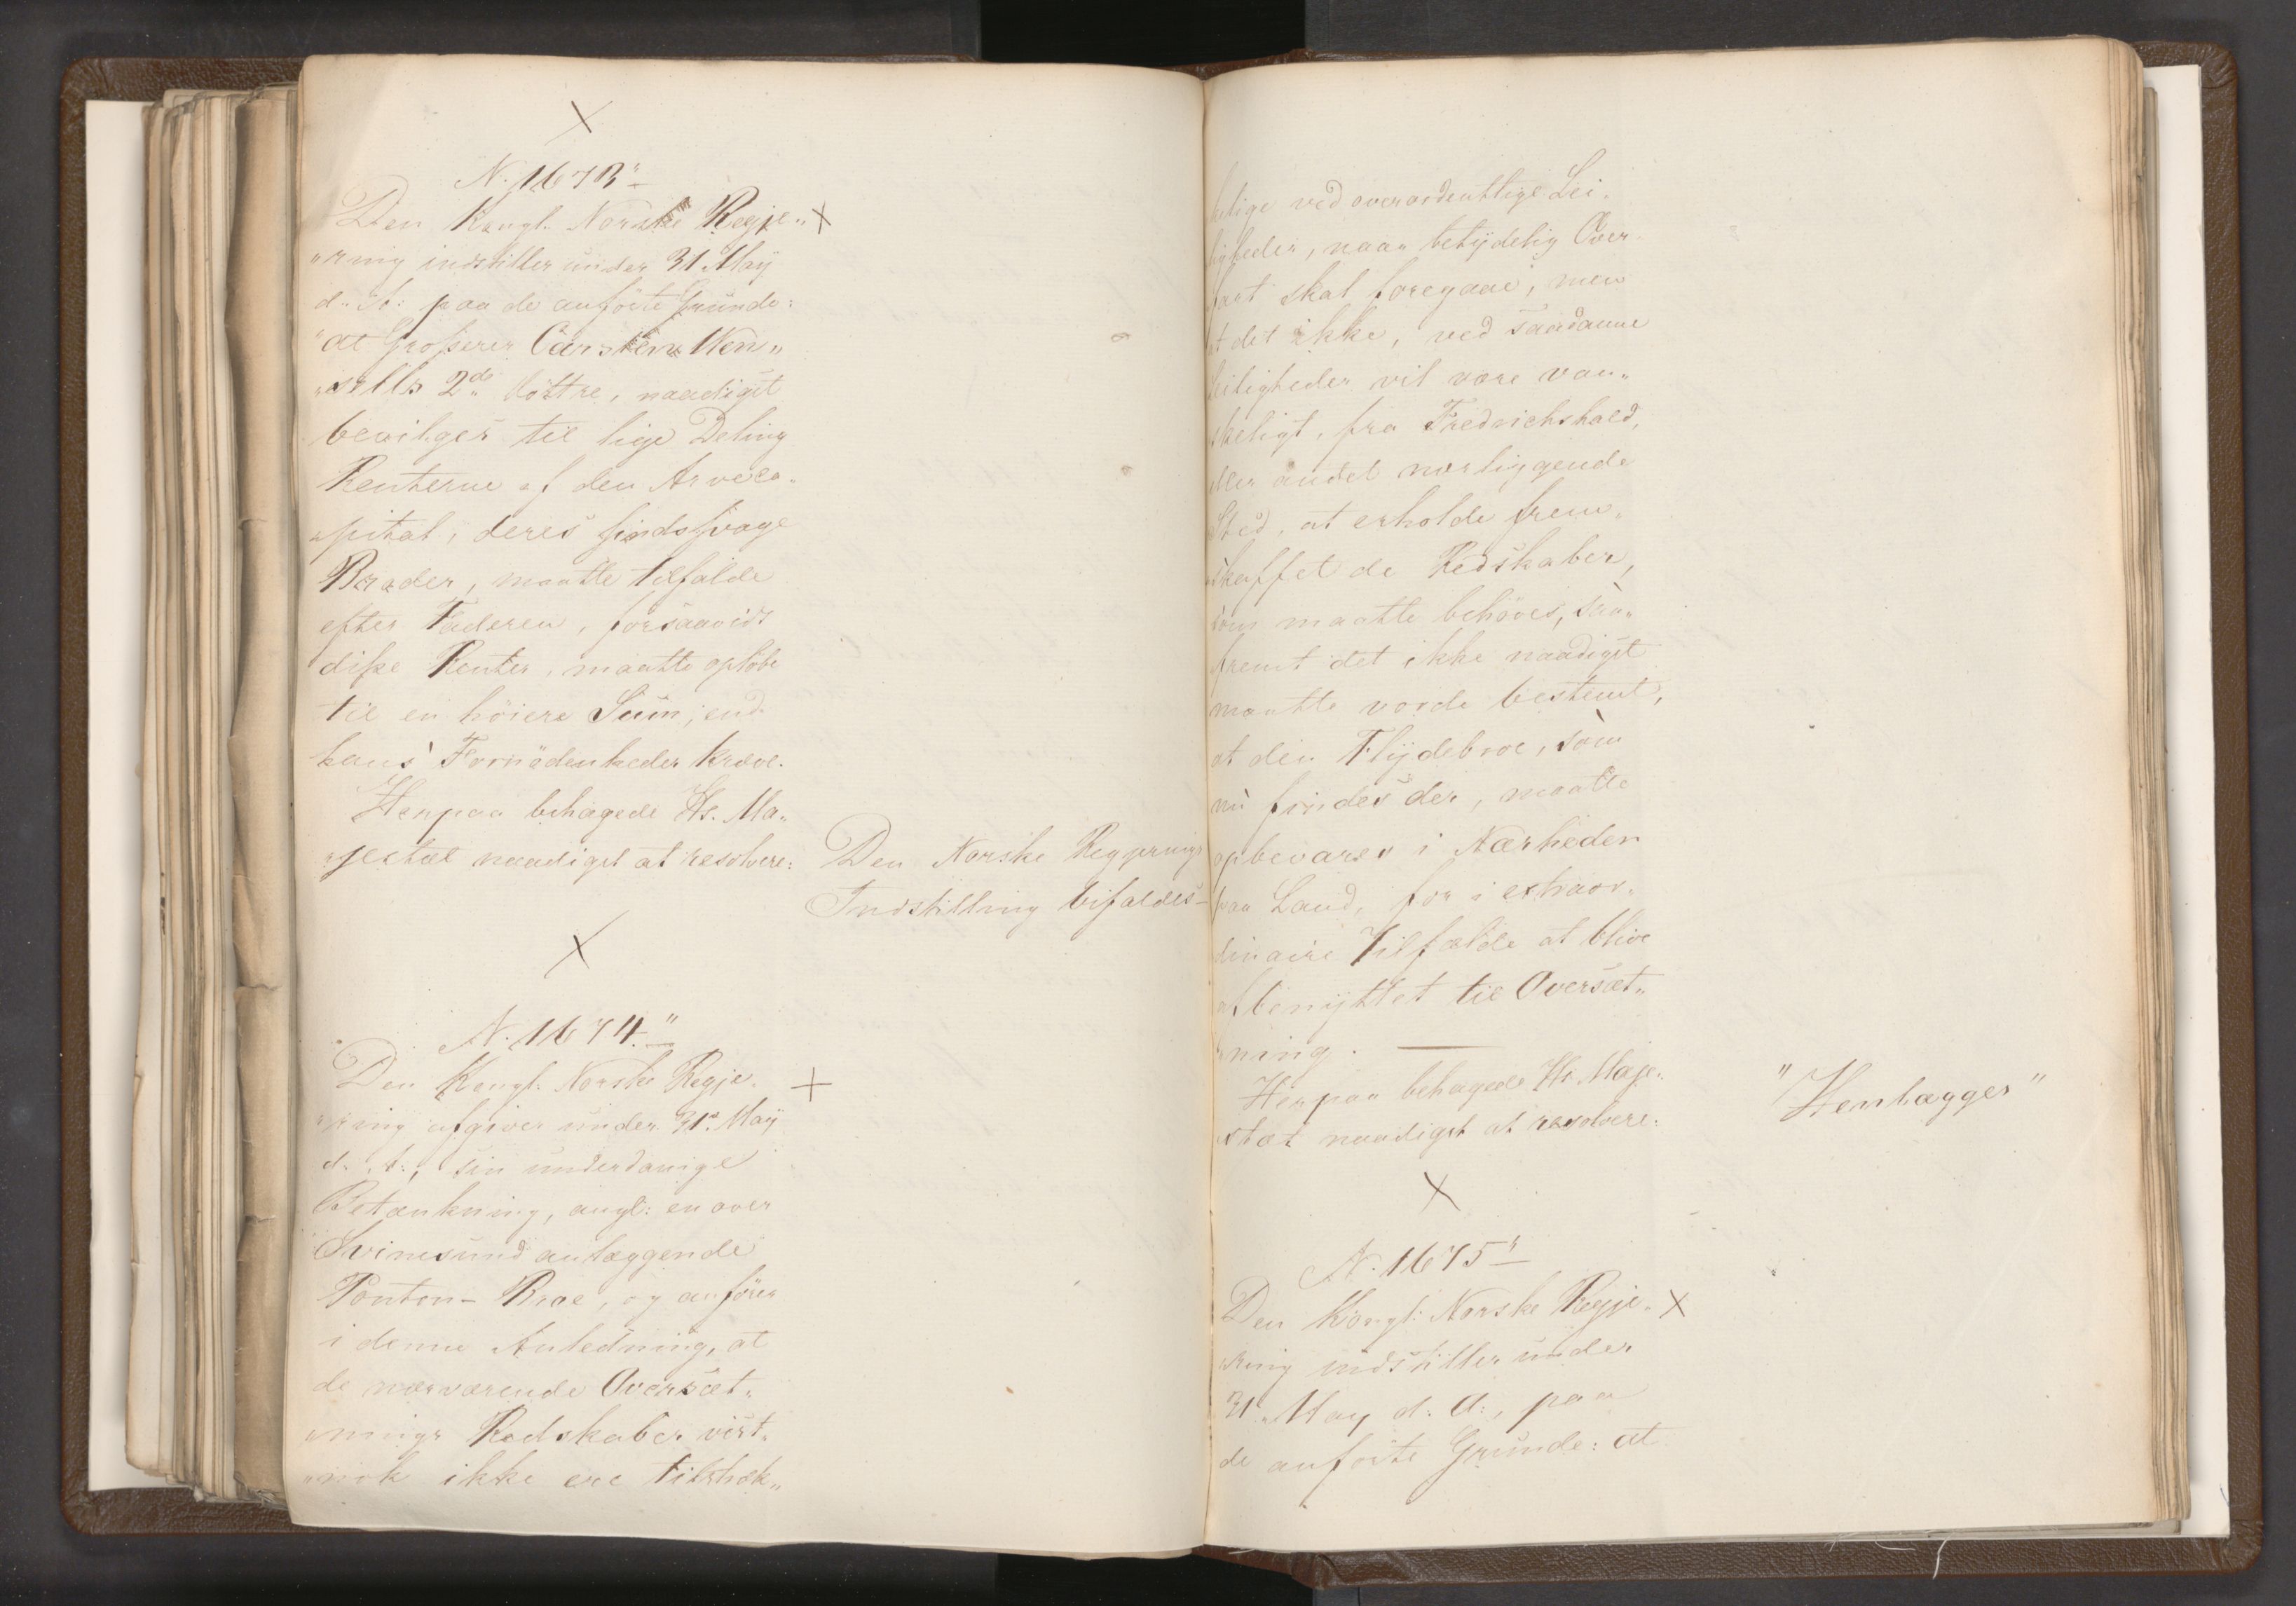 N. 1673"
Den Kongl. Norske Regje„
„ring indstiller under 31 May
d. A: paa de anförte Grunde:
at Grosserer Carsten Wen„
„sells 2de Döttre, naadigst
bevilges til lige Deling
Renterne af den Arveca„
„pital, deres sindssvage
Broder, maatte tilfalde
efter Faderen, forsaavidt
disse Renter, maatte opløbe
til en höiere Sum, end
hans Fornödenheder kræve.
Herpaa behagede Hs. Ma„
„jestæt naadigst at resolvere:
Den Norske Regjerings
Indstilling bifaldes
N. 1674."
Den Kongl. Norske Regje„
„ring afgiver under 31. May
d. A:, sin underdanige
Betænkning, angl: en over
Svinesund anlæggende
Ponton-Broe, og anförer
i denne Anledning, at
de nærværende Oversæt„
„nings Redskaber vist„
„nok ikke ere tilstræk„
kelige ved overordentlige Lei„
ligheder, naar betydelig Over„
fart skal foregaae, men
at det ikke, ved saadanne
Leiligheder vil være van„
skeligt, fra Fredrichshald,
eller andet nærliggende
Sted, at erholde frem„
skaffet de Redskaber,
som maatte behöves, saa„
fremt det ikke naadigst
maatte vorde bestemt,
at den Flydebroe, som
nu findes der, maatte
opbevares i Nærheden
paa Land, for i extraor„
dinaire Tilfælde at blive
afbenyttet til Oversæt„
„ning.
Herpaa behagede Hs. Maje„
stæt naadigst at resolvere:
"Henlægges"
N. 1675"
Den Kongl: Norske Regje„
„ring indstiller under
31. May d: A:, paa
de anförte Grunde: at